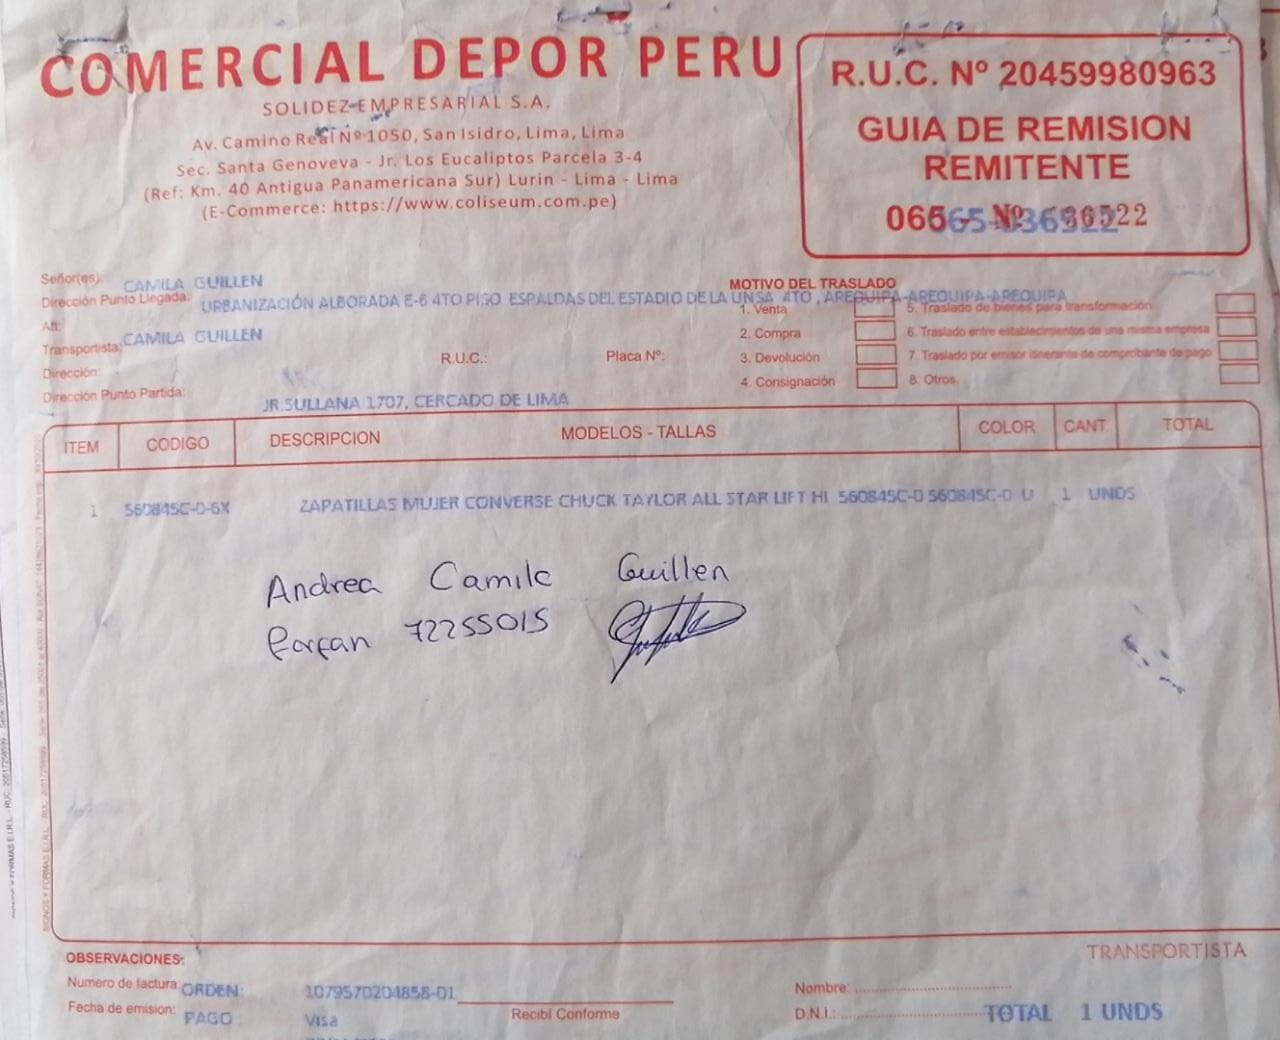 COMERCIAL DEPOR PERU
SOLIDEZ EMPRESARIAL S.A.
Av. Camino Real Nº 1050, San Isidro, Lima, Lima
Sec. Santa Genoveva - Jr. Los Eucaliptos Parcela 3-4
(Ref: Km. 40 Antigua Panamericana Sur) Lurin - Lima - Lima
(E-Commerce: https://www.coliseum.com.pe)
R.U.C. Nº 20459980963
GUIA DE REMISION
REMITENTE
065 - Nº 036522
Señor(es): CAMILA GUILLEN
Dirección Punto Llegada: URBANIZACIÓN ALBORADA E-6 4TO PISO ESPALDAS DEL ESTADIO DE LA UNSA 4TO , AREQUIPA-AREQUIPA-AREQUIPA
Att: CAMILA GUILLEN
Transportista:
R.U.C.: Placa Nº:
Dirección:
Dirección Punto Partida: JR.SULLANA 1707, CERCADO DE LIMA
MOTIVO DEL TRASLADO
1. Venta
2. Compra
3. Devolución
4. Consignación
5. Traslado de bienes para transformación
6. Traslado entre establecimientos de una misma empresa
7. Traslado por emisor itinerante de comprobante de pago
8. Otros.
ITEM CODIGO DESCRIPCION MODELOS - TALLAS COLOR CANT. TOTAL
1 560845C-0-6X ZAPATILLAS MUJER CONVERSE CHUCK TAYLOR ALL STAR LIFT HI 560845C-0 560845C-0 U 1 UNDS
Andrea Camila Guillen
72255015
OBSERVACIONES:
TRANSPORTISTA
Numero de factura: ORDEN: 1079570204858-01
Fecha de emision: PAGO : Visa
Recibí Conforme
Nombre:
D.N.I.:
TOTAL 1 UNDS